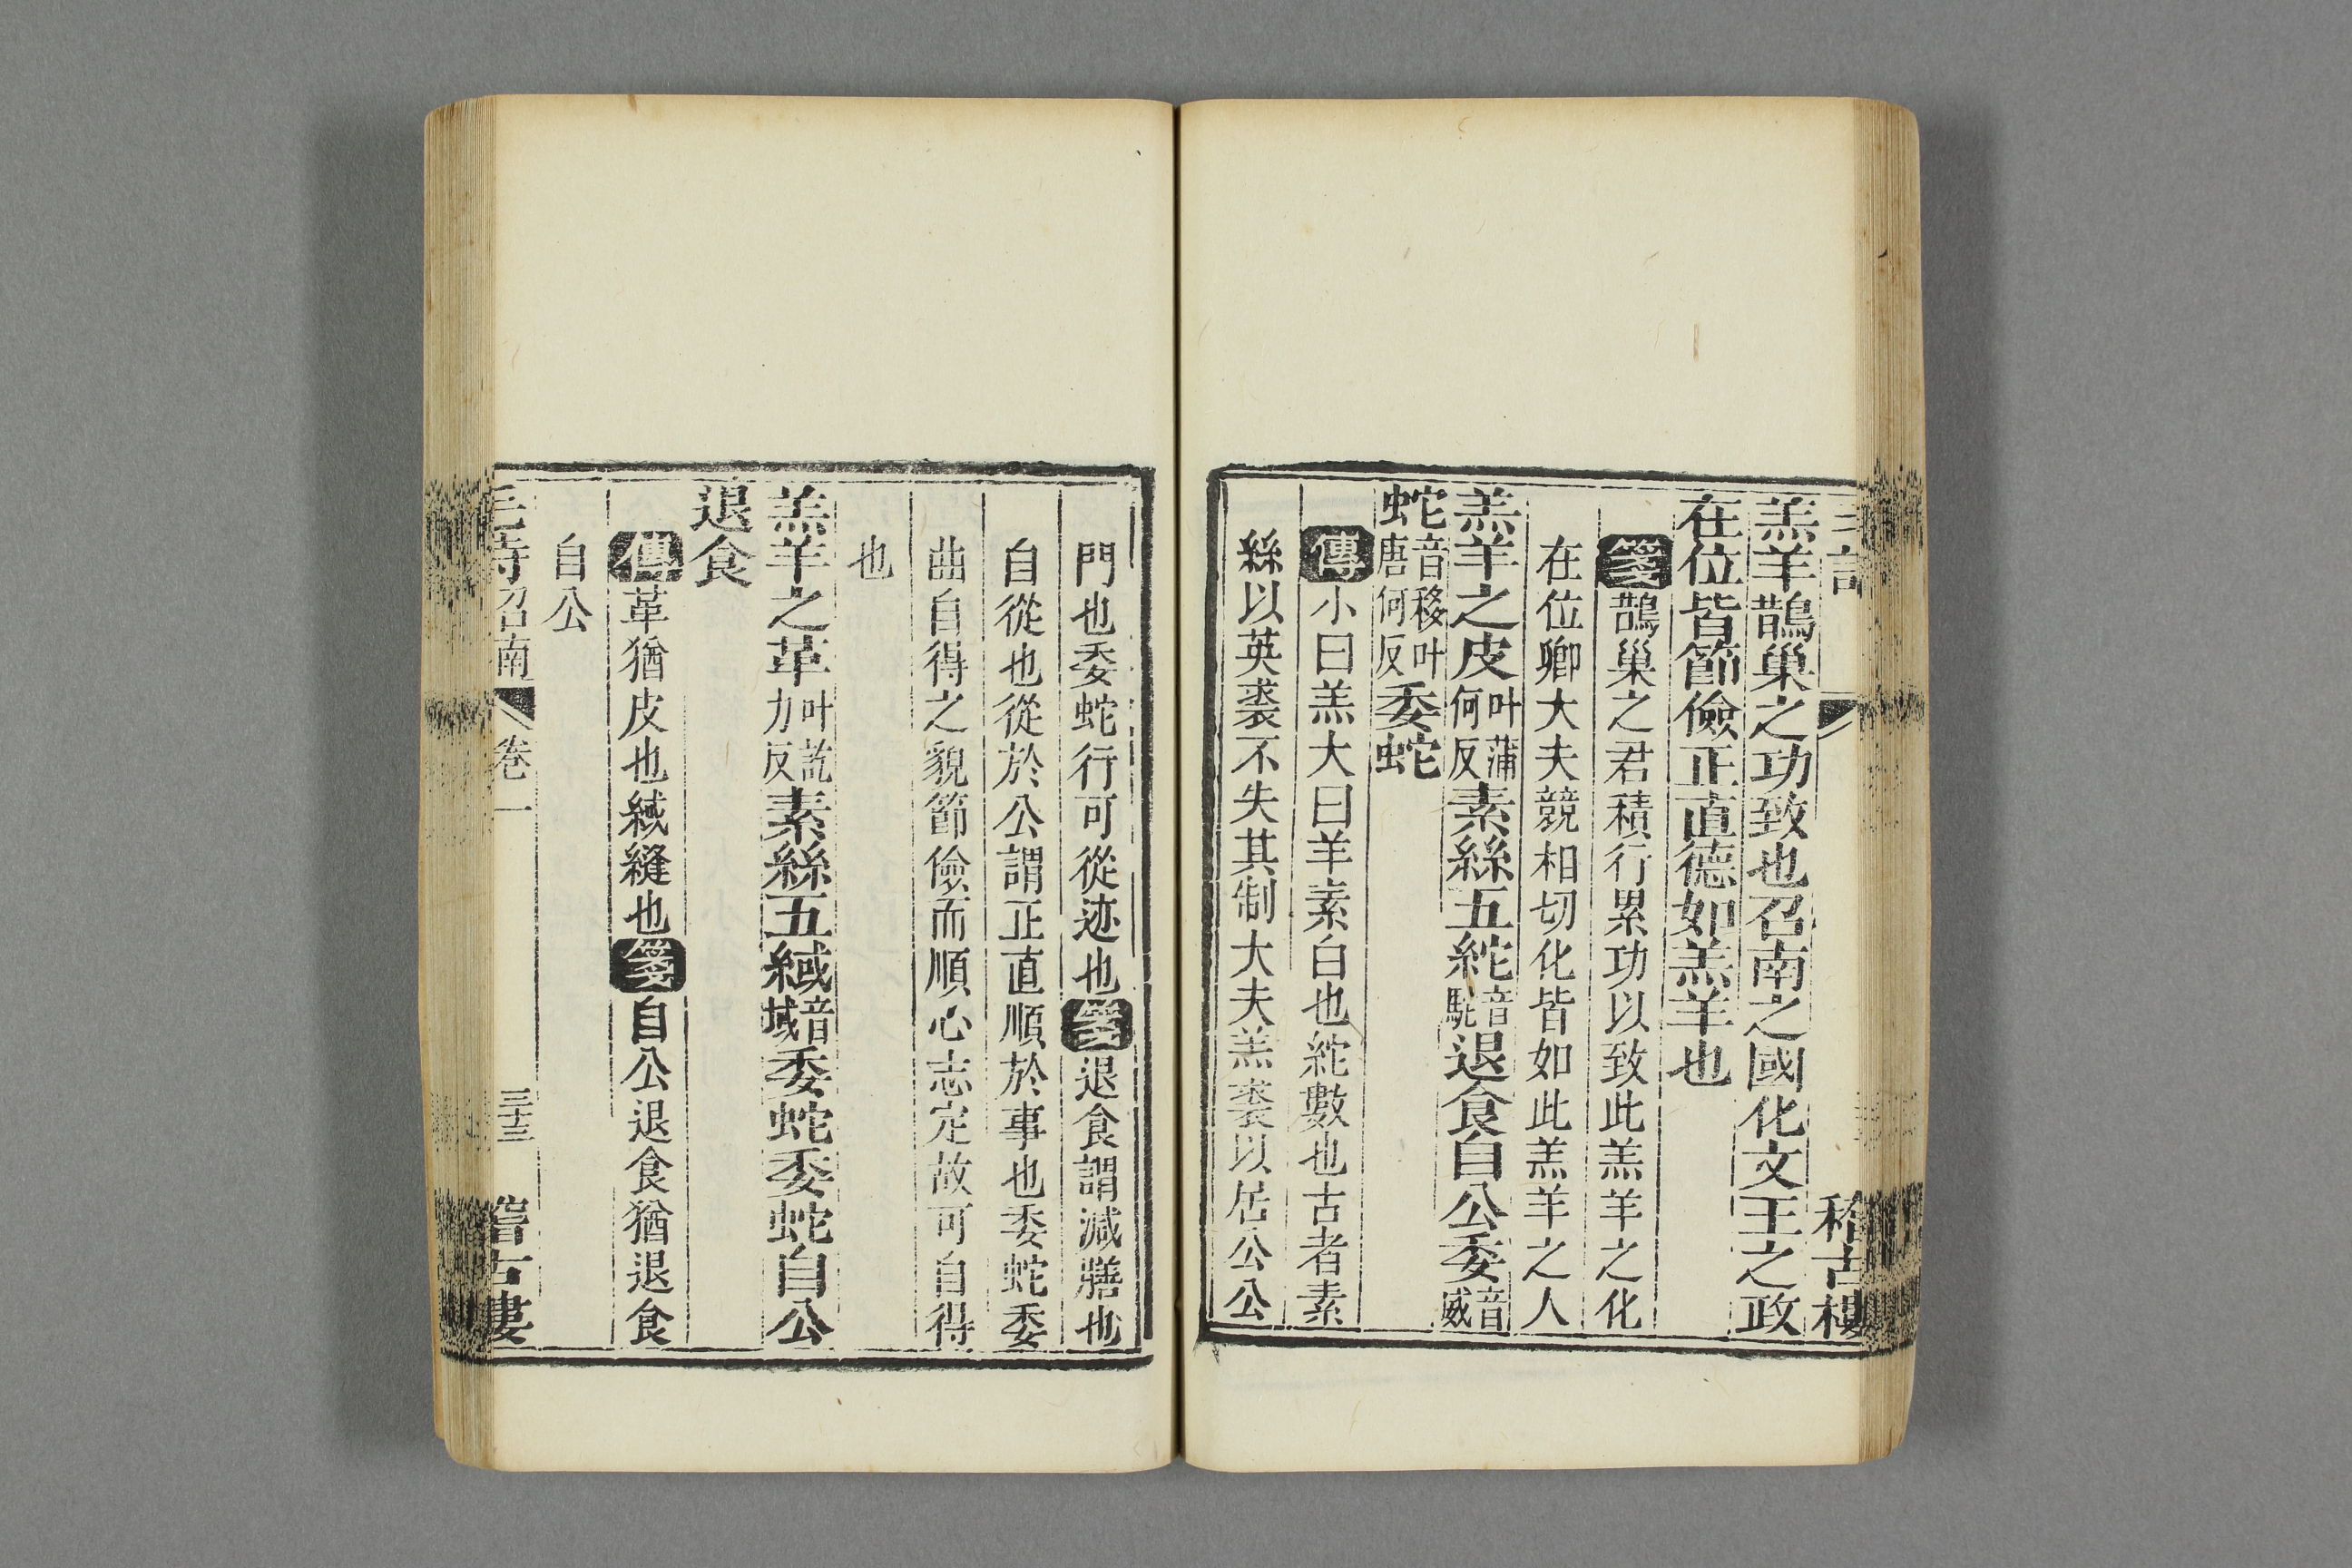 羔羊鵲巢之功致也召南之國化文王之政
在位皆節儉正直德如羔羊也
箋鵲巢之君積行累功以致此羔羊之化
在位卿大夫競相切化皆如此羔羊之人
羔羊之皮叶蒲何反素絲五紽音駝退食自公委音威
蛇音移叶唐何反委蛇
傳小曰羔大曰羊素白也紽數也古者素
絲以英裘不失其制大夫羔裘以居公公
門也委蛇行可從迹也箋退食謂減膳也
自從也從於公謂正直順於事也委蛇委
曲自得之貌節儉而順心志定故可自得
也
羔羊之革叶訖力反素絲五緎音域委蛇委蛇自公
退食
傳革猶皮也緎縫也箋自公退食猶退食
自公
毛詩召南 卷一 三十三 稽古樓